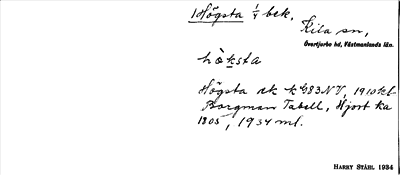 Högsta 1/4 bek.
Kila sn,
Övertjurbo hd, Västmanlands län.
hò̀ksta
Högsta ek k G83 NV, 1910 kl.
Borgman Tabell, Hjort ka
1805, 1934 ml.
HARRY STÅHL 1934